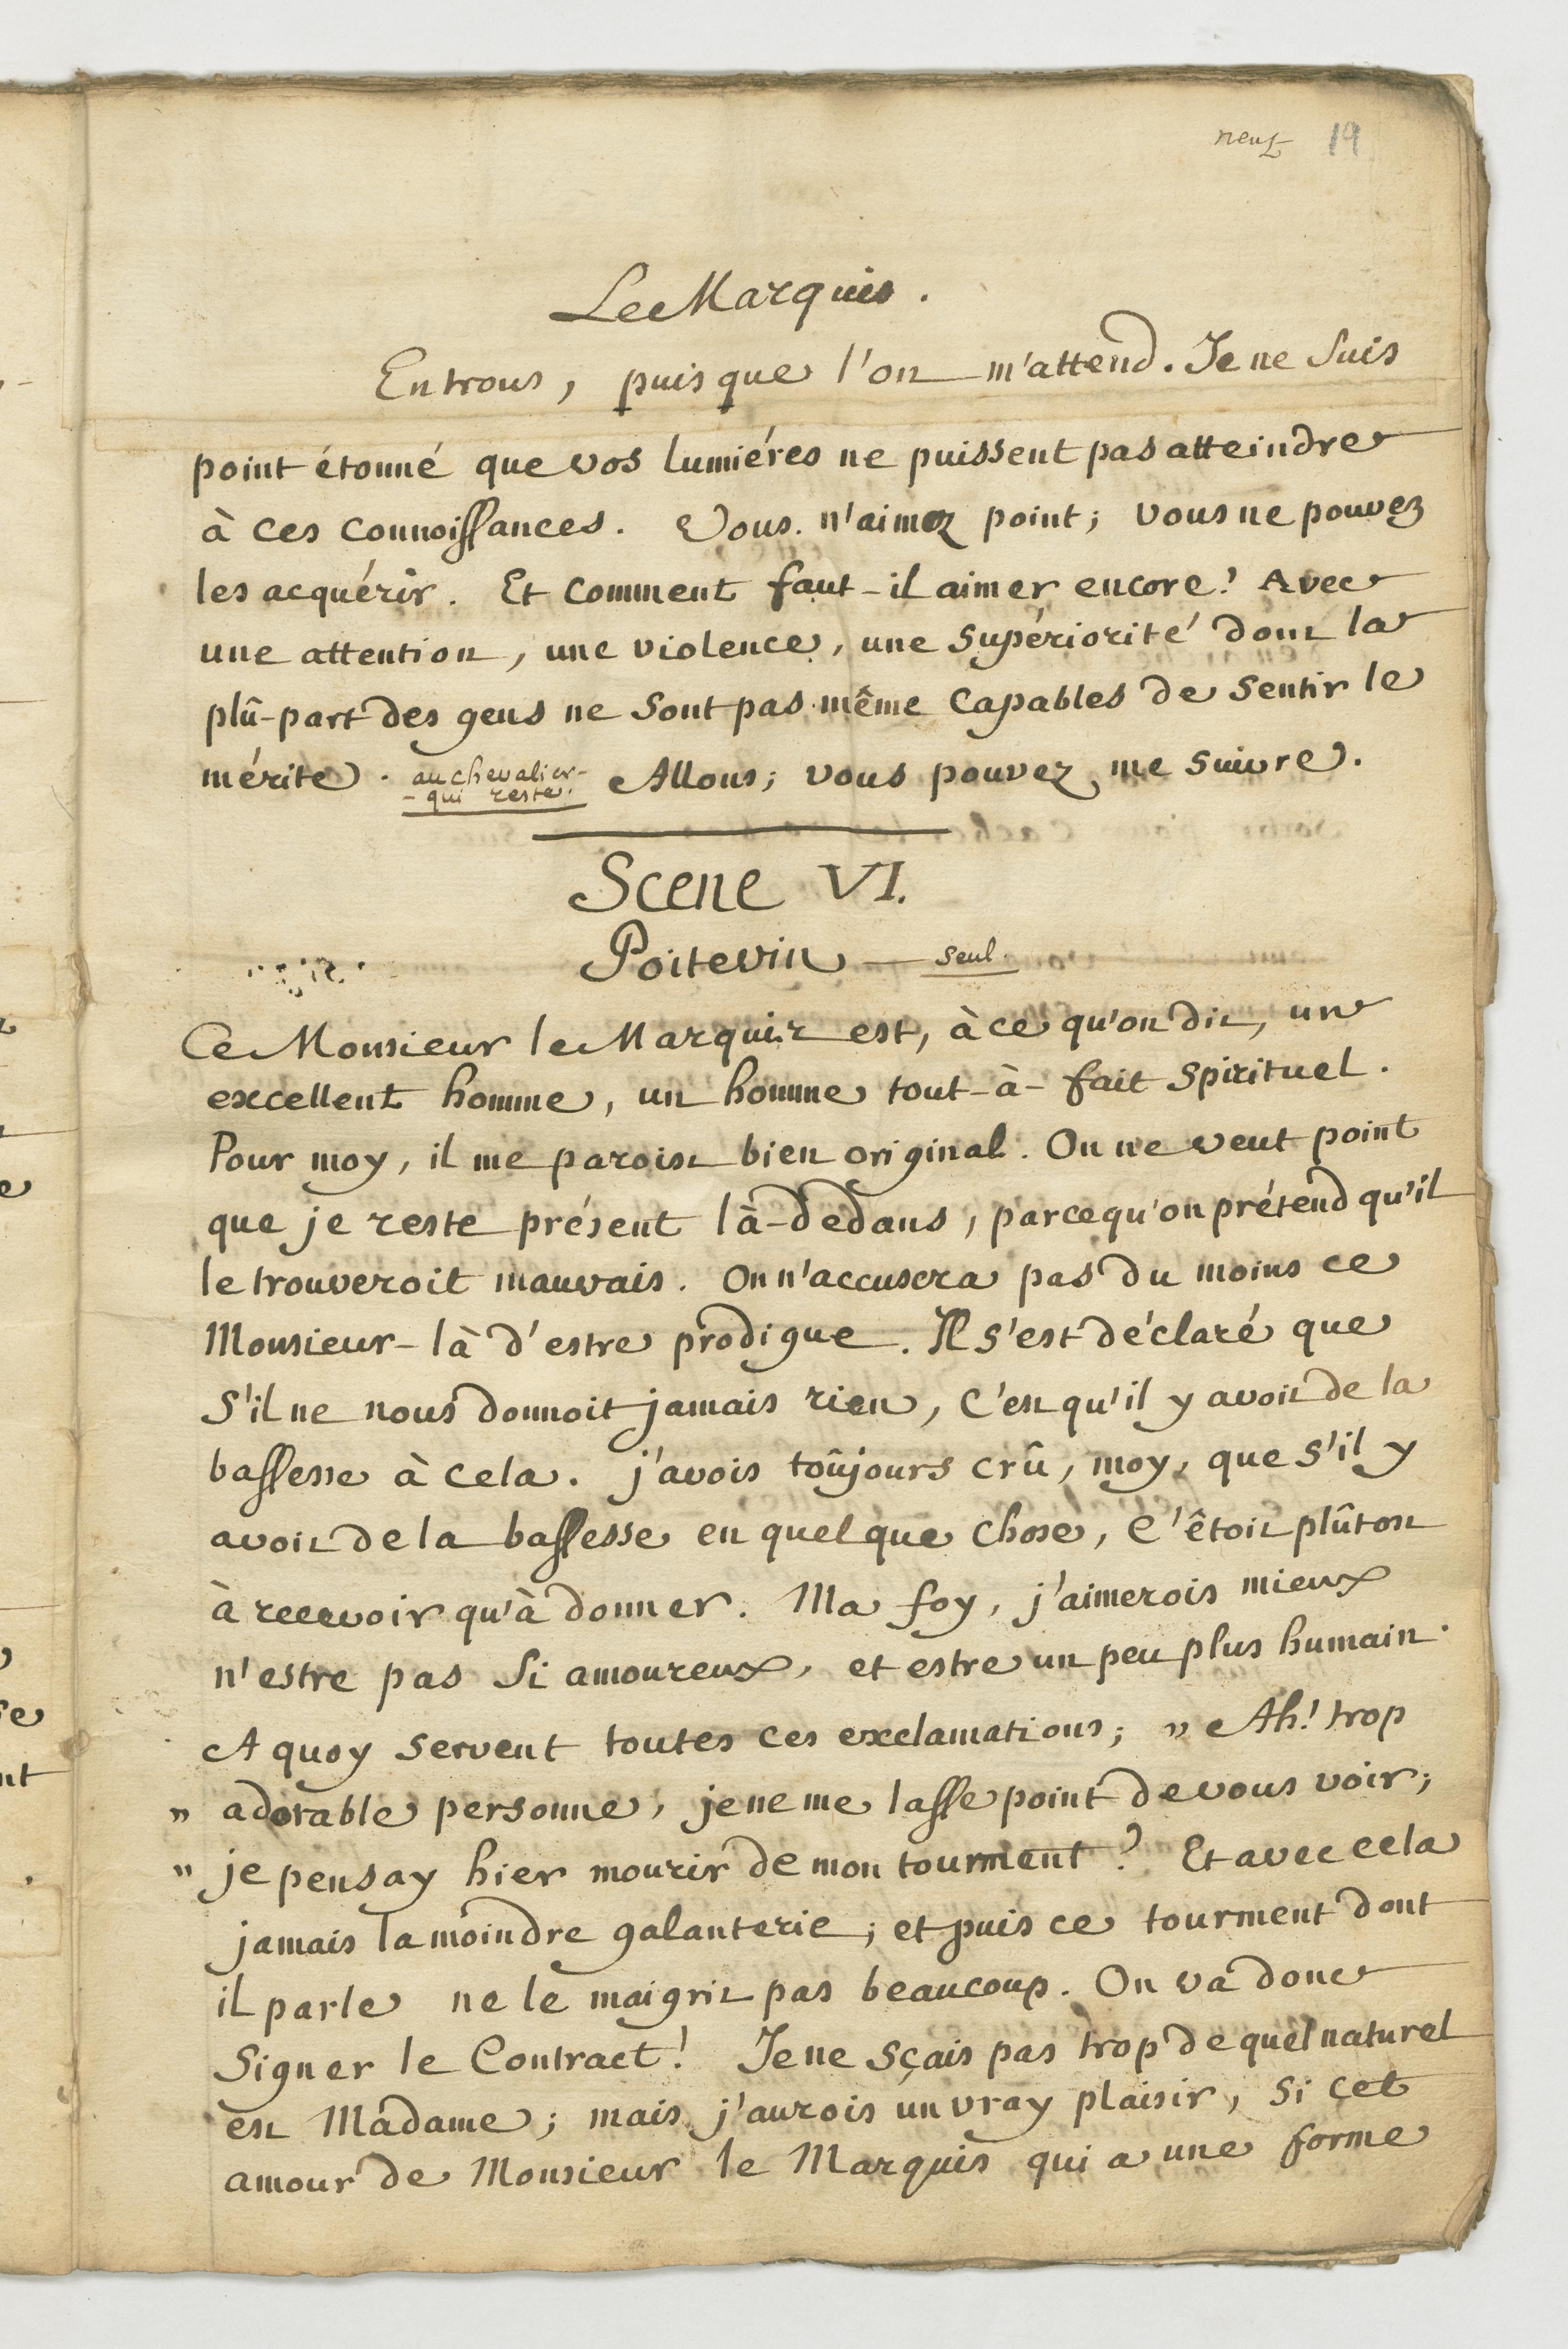 neuf 19
Le Marquis.
Entrons, puisque l'on m'attend. Je ne suis
point étonné que vos lumiéres ne puissent pas atteindre
à ces connoissances. Vous n'aimez point; vous ne pouvez
les acquérir. Et comment faut-il aimer encore! Avec
une attention, une violence, une supériorité dont la
plû-part des gens ne sont pas même capables de sentir le
mérite. au chevalier-
- qui reste. Allons; vous pouvez me suivre.
Scene VI.
Poitevin seul.
Ce Monsieur le Marquis est, à ce qu'on dit, un
excellent homme, un homme tout-à-fait spirituel.
Pour moy, il me paroist bien original. On ne veut point
que je reste présent là-dedans, parcequ'on prétend qu'il
le trouveroit mauvais. On n'accusera pas du moins ce
Monsieur-là d'estre prodigue. Il s'est déclaré que
s'il ne nous donnoit jamais rien, c'est qu'il y avoit de la
bassesse à cela. j'avois toûjours crû, moy, que s'il y
avoit de la bassesse en quelque chose, c'êtoit plûtost
à recevoir qu'à donner. Ma foy, j'aimerois mieux
n'estre pas si amoureux, et estre un peu plus humain.
A quoy servent toutes ces exclamations; " Ah! trop
" adorable personne, je ne me lasse point de vous voir;
" je pensay hier mourir de mon tourment? Et avec cela
jamais la moindre galanterie; et puis ce tourment dont
il parle ne le maigrit pas beaucoup. On va donc
signer le Contract! Je ne sçais pas trop de quel naturel
est Madame; mais j'aurois un vray plaisir, si cet
amour de Monsieur le Marquis qui a une forme